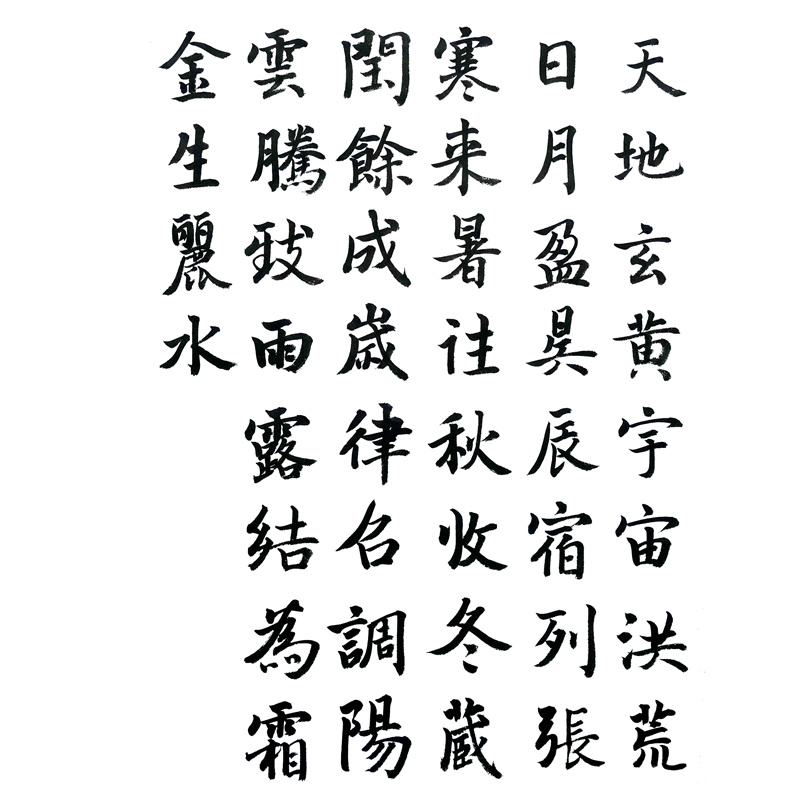 天地玄黃宇宙洪荒
日月盈昃辰宿列張
寒来暑往秋收冬蔵
閏餘成歲律召調陽
雲騰致雨露結為霜
金生麗水